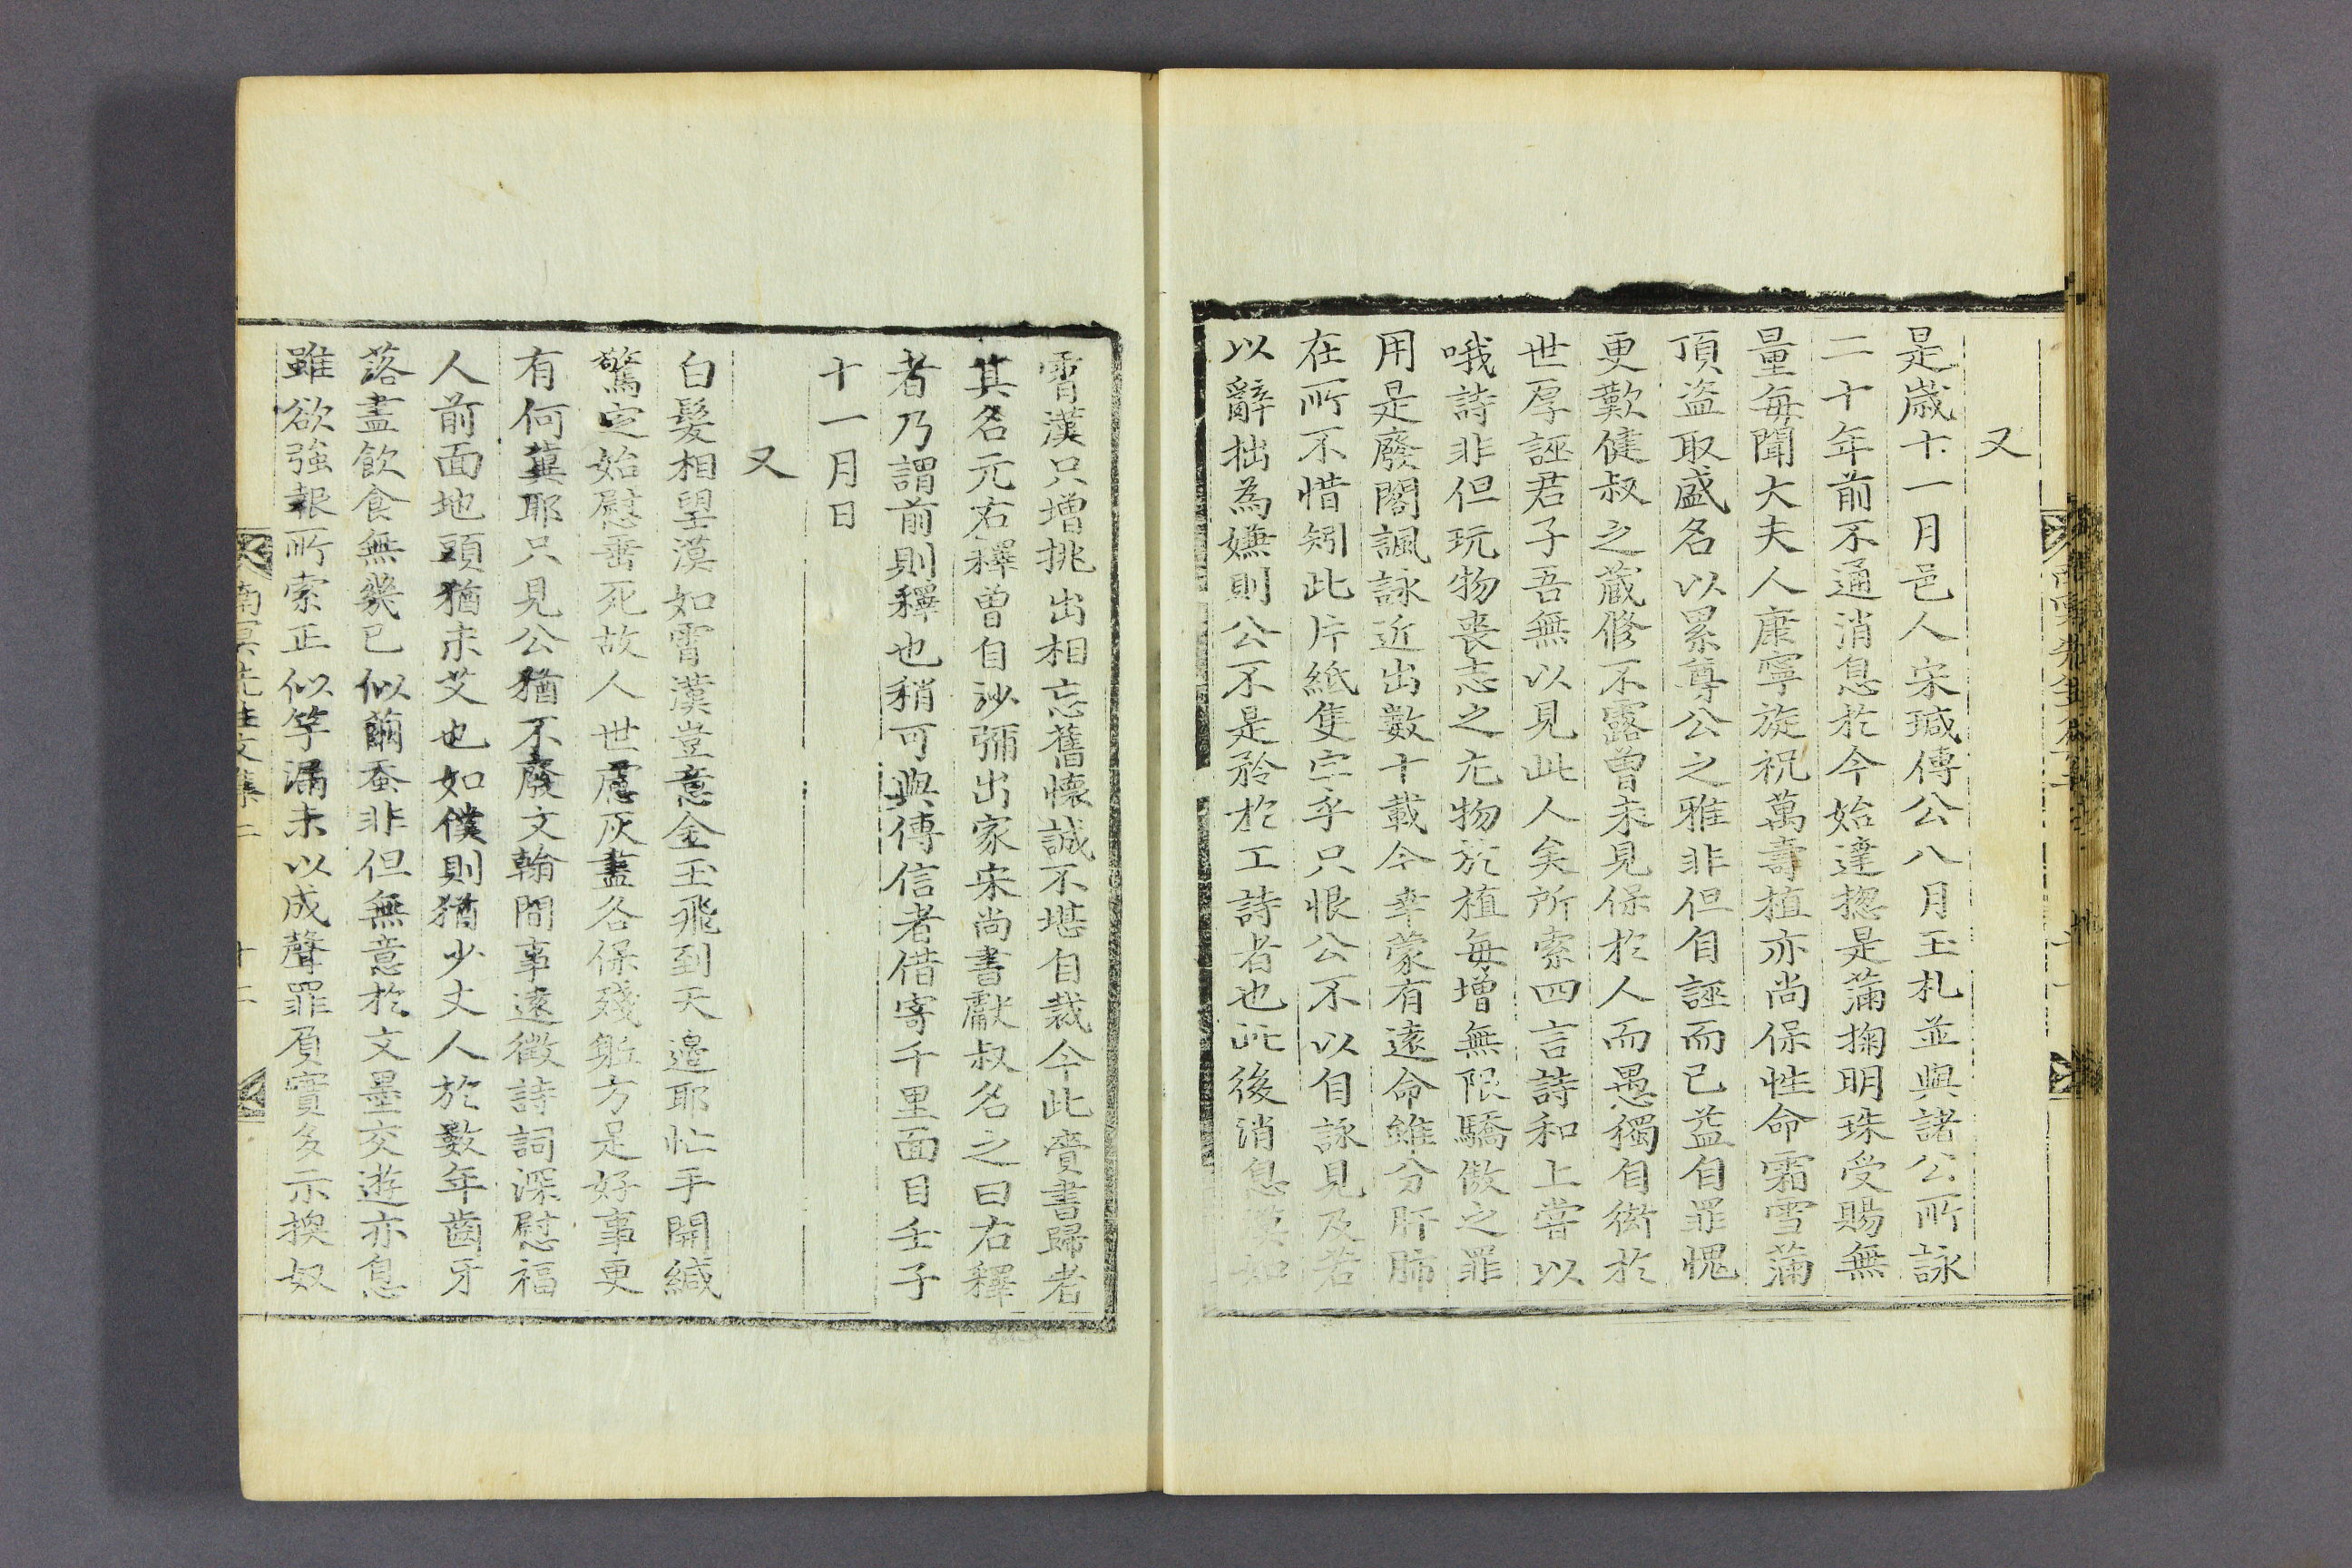 又
是歲十一月邑人宋瑊傳公八月玉札並與諸公所詠
二十年前不通消息於今始達摠是蒲掬明珠受賜無
量每聞大夫人康寧旋祝萬壽植亦尚保性命霜雪蒲
頂盜取盛名以累尊公之雅非但自誣而已益自罪愧
更歎健叔之蔵修不露曾未見保於人而愚獨自衒於
世厚誣君子吾無以見此人矣所索四言詩和上嘗以
哦詩非但玩物喪志之尤物於植每增無限驕傲之罪
用是廢閣諷詠近出數十載今幸蒙有遠命雖分肝肺
在所不惜矧此片紙隻字乎只恨公不以自詠見及若
以辭拙為嫌則公不是矜於工詩者也此後消息漠如
霄漢只增挑出相忘舊懷誠不堪自裁今此賫書歸者
其名元右釋曽自沙彌出家宋尚書獻叔名之曰右釋
者乃謂前則釋也稍可與傳信者借寄千里面目壬子
十一月日
又
白髮相望漠如霄漢豈意金玉飛到天邊耶忙手開緘
驚定始慰垂死故人世慮灰盡各保殘軀方是好事更
有何兾耶只見公猶不廢文翰間事遠徵詩詞深慰福
人前面地頭猶未艾也如僕則猶少丈人於數年齒牙
落盡飲食無幾已似繭蚕非但無意於文墨交遊亦息
雖欲強報所索正似竽漏未以成聲罪負實多示換奴
南冥先生文集二
十二